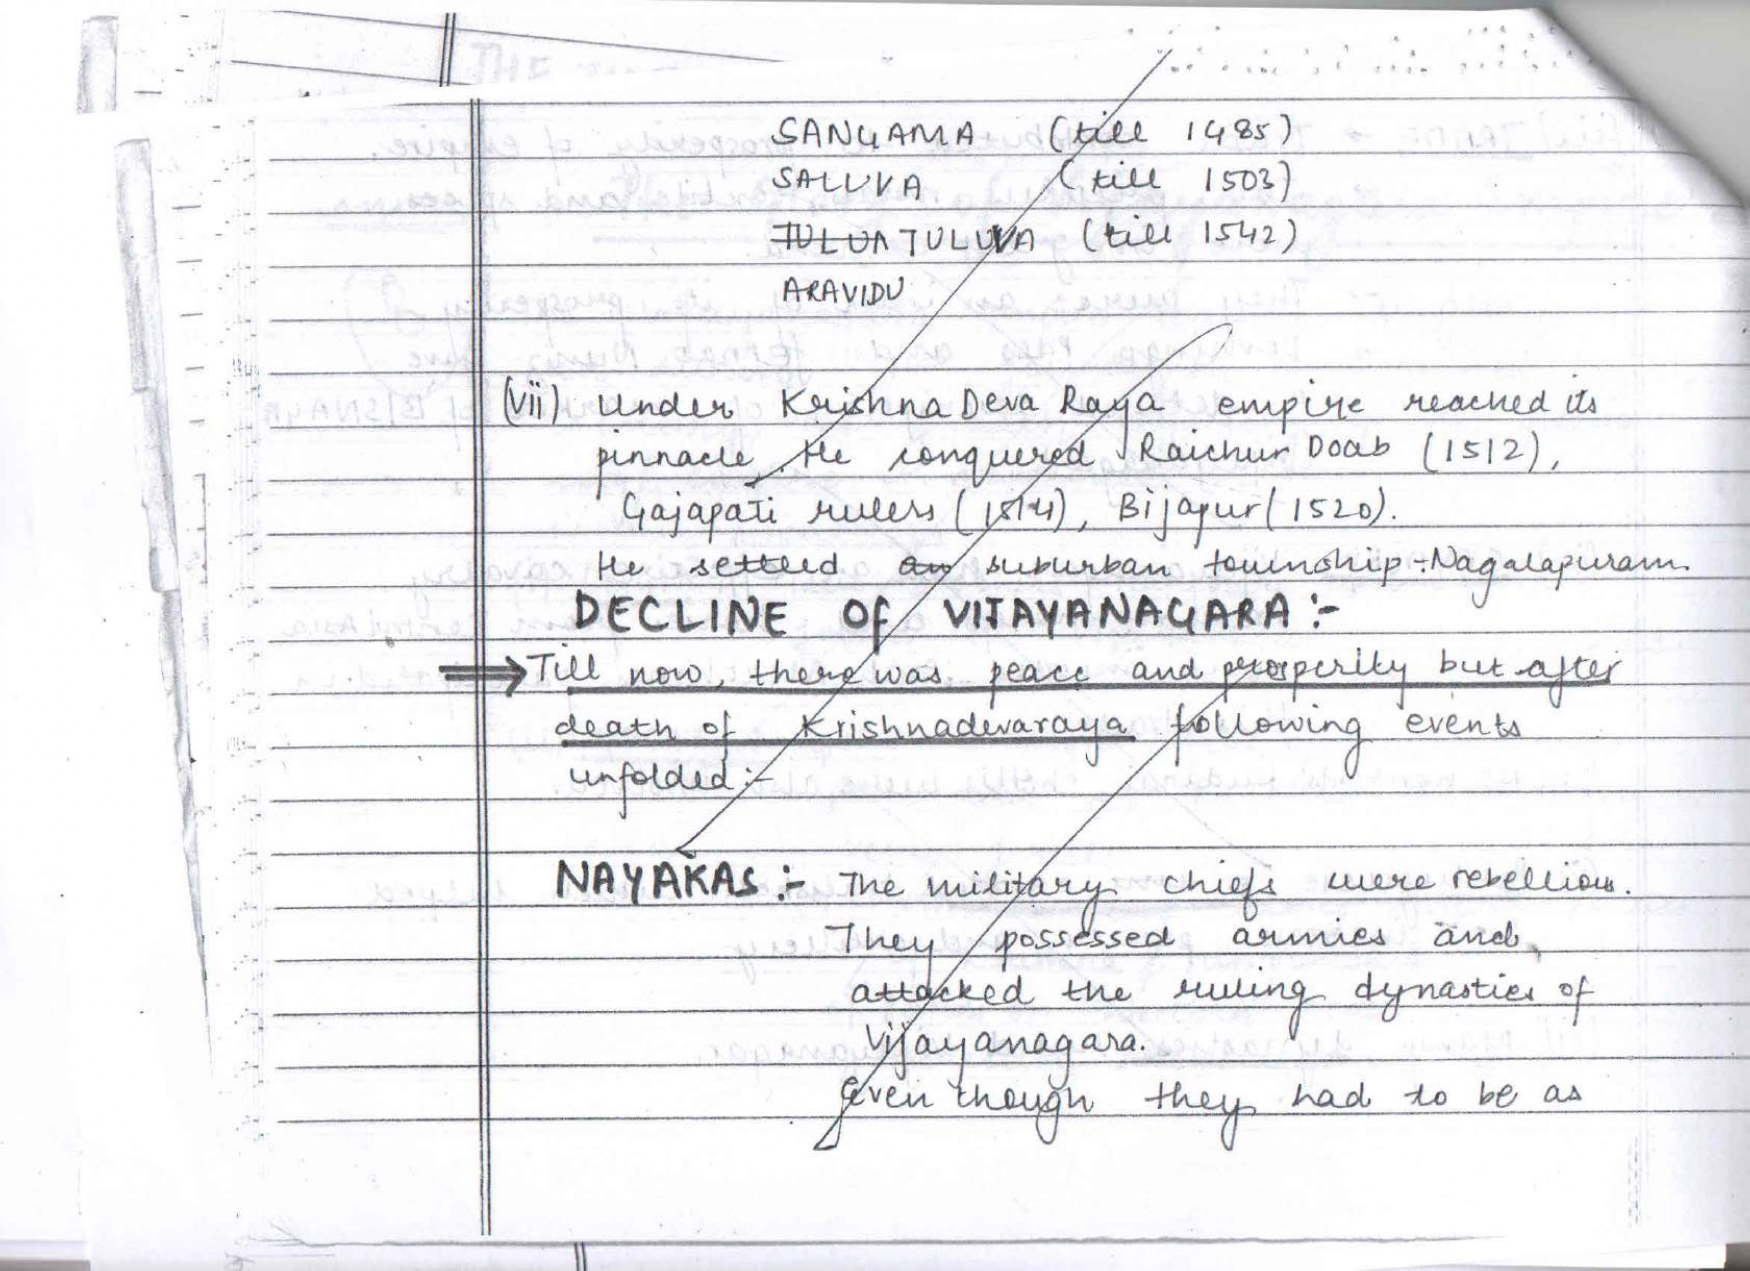 SANGAMA (till 1485)
SALUVA (till 1503)
TULUVA (till 1542)
ARAVIDU
(vii) Under Krishna Deva Raya empire reached its
pinnacle. He conquered Raichur Doab (1512),
Gajapati rulers (1514), Bijapur (1520).
He settled suburban township :- Nagalapuram.
DECLINE OF VIJAYANAGARA :-
⇒ Till now, there was peace and prosperity but after
death of Krishnadevaraya following events
unfolded :-
NAYAKAS :- The military chiefs were rebellion.
They possessed armies and
attacked the ruling dynasties of
Vijayanagara.
Even though they had to be as